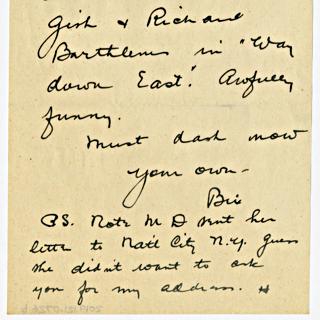 Gish & Richard
Barthlems in "Way
down East". Awfully
funny.
Must dash now
your own -
Bix
PS. Note M D sent her
letter to Nat'l City N.Y. Guess
she didn't want to ask
you for my address.